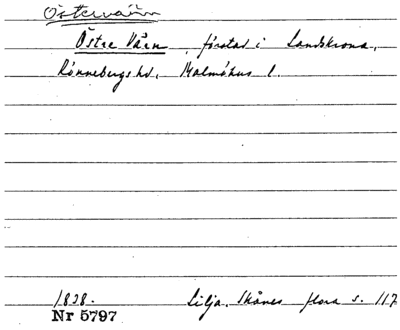 Östervärn
Östre Värn, förstad i Landskrona,
Rönnebergs hd, Malmöhus l.
1838. Lilja. Skånes flora s. 117
Nr 5797